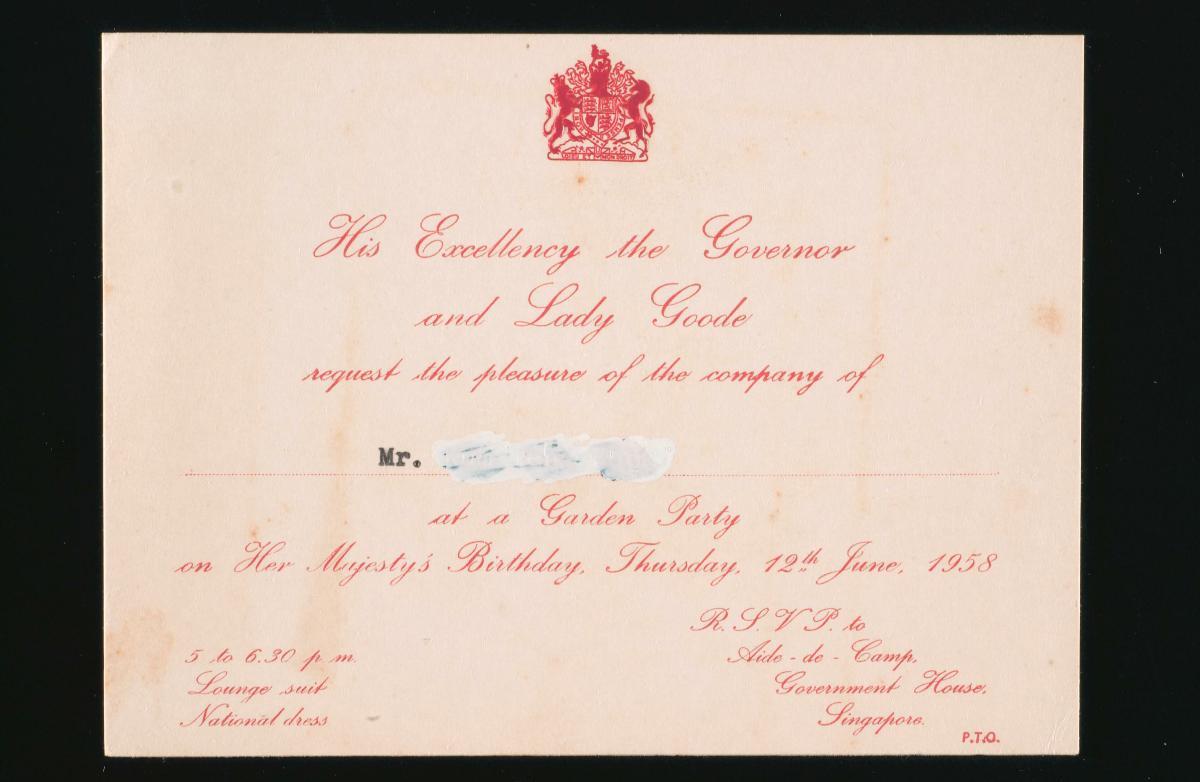 His Excellency the Governor
and Lady Goode
request the pleasure of the company of
Mr.
at a Garden Party
on Her Majesty's Birthday, Thursday, 12th June, 1958
R. S. V. P. to
Aide - de - Camp,
Government House,
Singapore.
5 to 6.30 p. m.
Lounge suit
National dress
P.T.O.